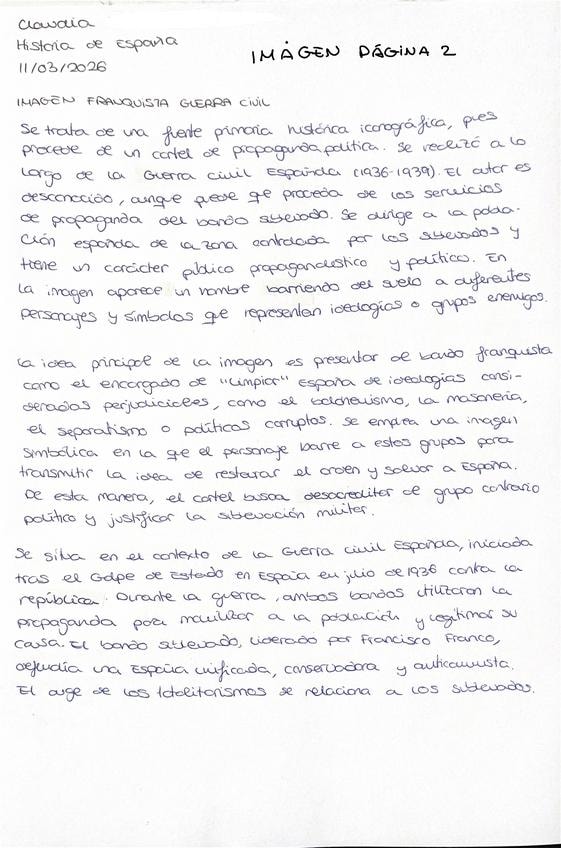 Claudia
Historia de España
11/03/2026
IMÁGEN PÁGINA 2
IMAGEN FRANQUISTA GUERRA CIVIL
Se trata de una fuente primaria histórica iconográfica, pues
procede de un cartel de propaganda política. Se realizó a lo
largo de la Guerra civil Española (1936-1939). El autor es
desconocido, aunque puede que proceda de los servicios
de propaganda del bando sublevado. Se dirige a la pobla-
ción española de la zona controlada por los sublevados y
tiene un carácter público propagandístico y político. En
la imagen aparece un hombre barriendo del suelo a diferentes
personajes y símbolos que representan ideologías o grupos enemigos.
La idea principal de la imagen es presentar de bando franquista
como el encargado de "limpiar" España de ideologías consi-
deradas perjudiciales, como el bolchevismo, la masonería,
el separatismo o políticos corruptos. Se emplea una imagen
simbólica en la que el personaje barre a estos grupos para
transmitir la idea de restaurar el orden y salvar a España.
De esta manera, el cartel busca desacreditar de grupo contrario
político y justificar la sublevación militar.
Se sitúa en el contexto de la Guerra civil Española, iniciada
tras el Golpe de Estado en España en julio de 1936 contra la
república. Durante la guerra, ambos bandos utilizaron la
propaganda para movilizar a la población y legitimar su
causa. El bando sublevado, liderado por Francisco Franco,
defendía una España unificada, conservadora y anticomunista.
El auge de los totalitarismos se relaciona a los sublevados.